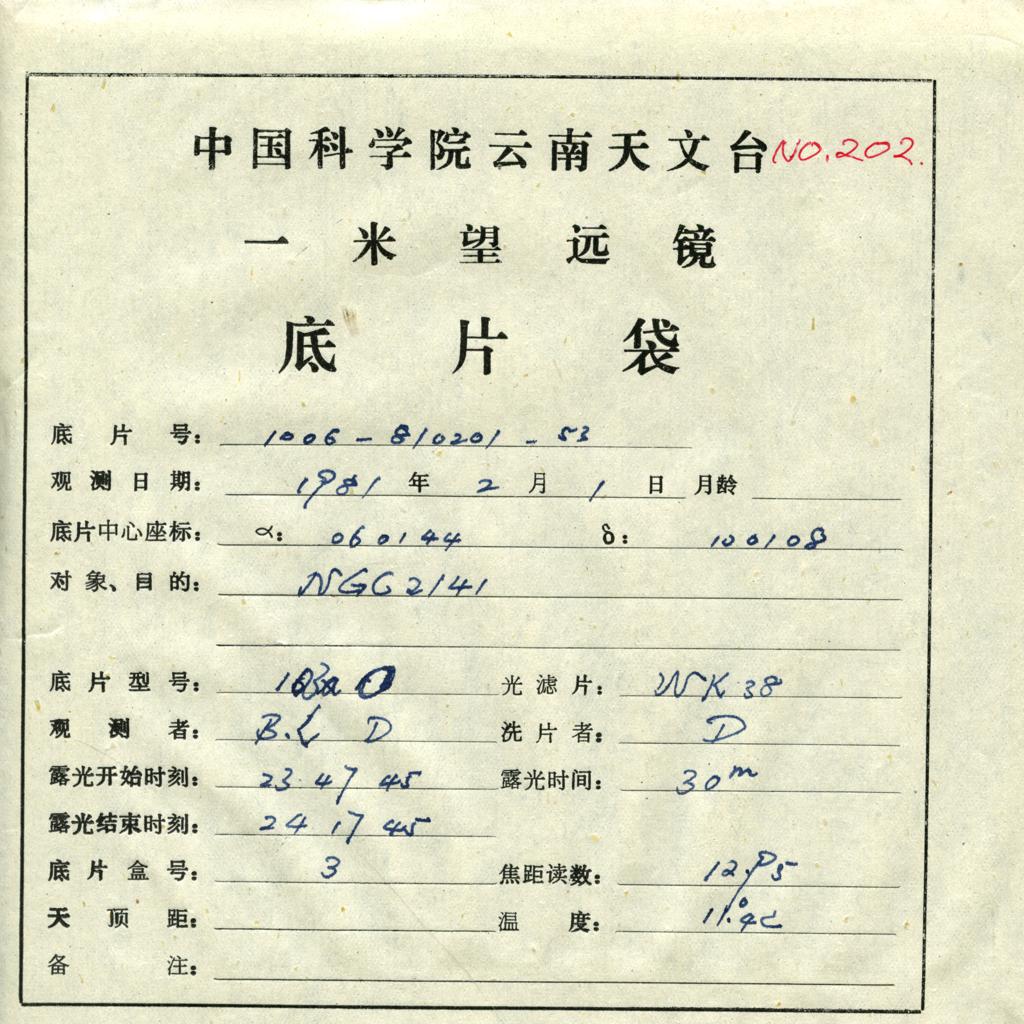 中国科学院云南天文台 NO.202.
一米望远镜
底片袋
底片号: 1006-810201-53
观测日期: 1981 年 2 月 1 日 月龄
底片中心座标: α: 060144 δ: 100108
对象、目的: NGC2141
底片型号: 103a O 光滤片: WK38
观测者: B.L D 洗片者: D
露光开始时刻: 23 47 45 露光时间: 30m
露光结束时刻: 24 17 45
底片盒号: 3 焦距读数: 12.95
天顶距: 温度: 11.4c
备注: